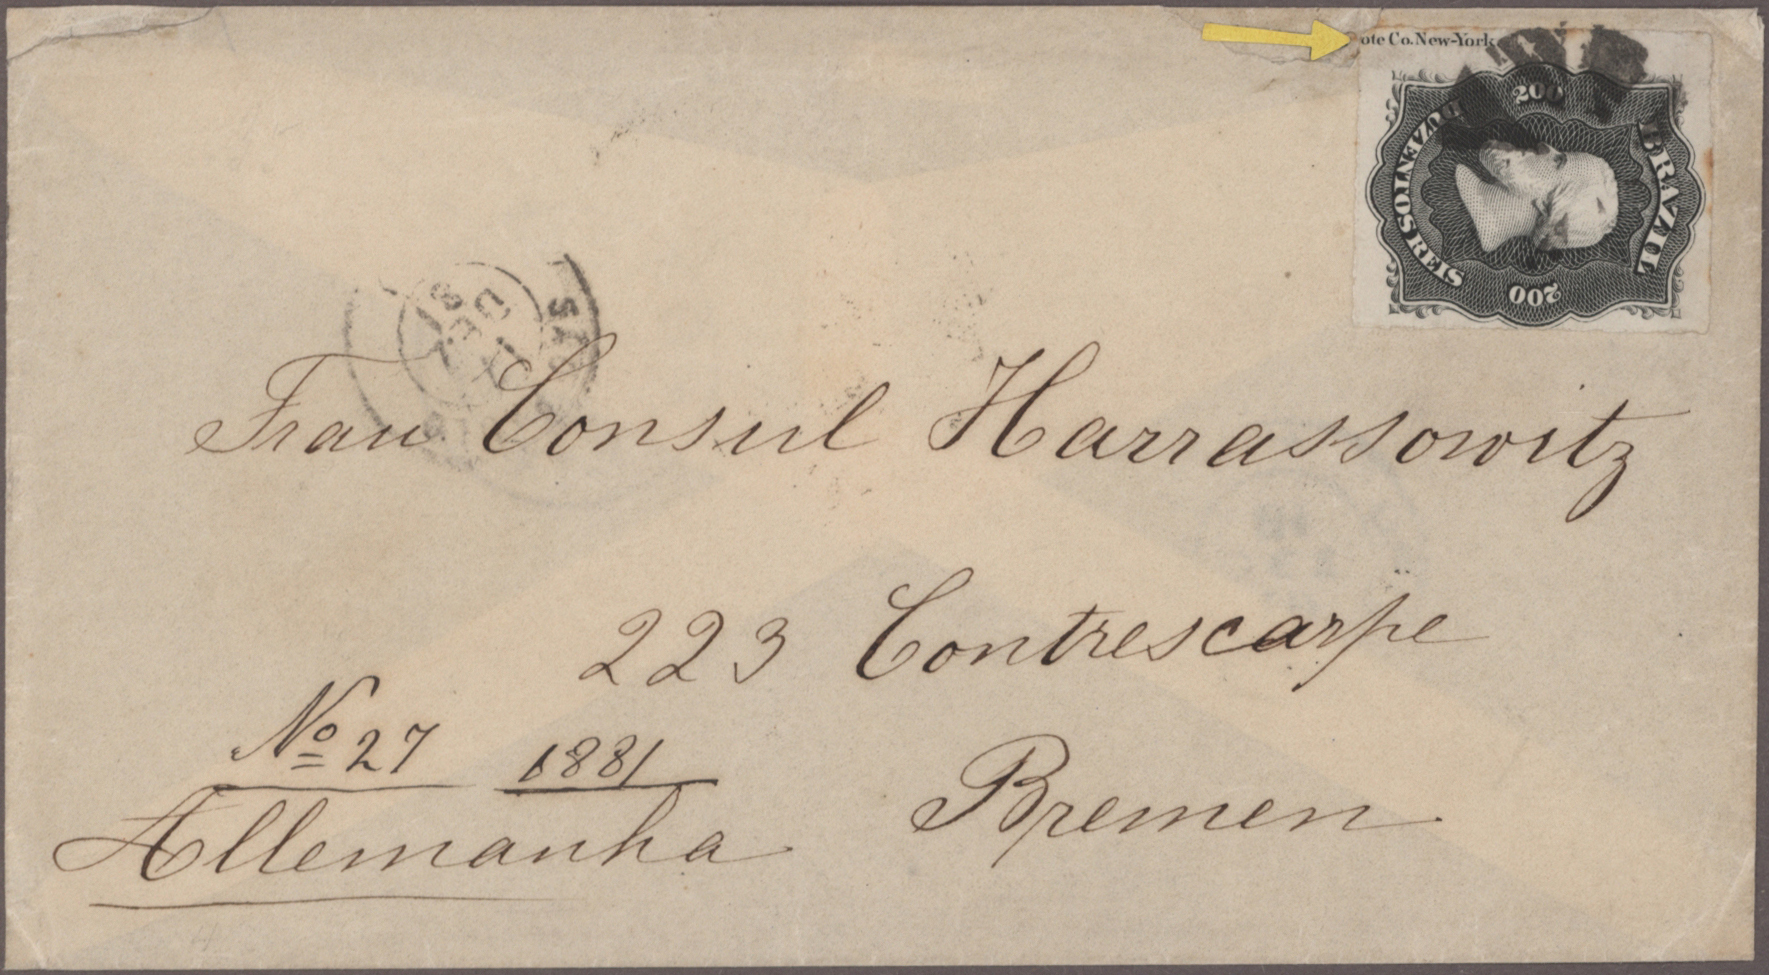 ote Co. New-York
200
BRAZIL
DUZENTOS REIS
200
DEZ
81
Frau Consul Harrassowitz
223 Contrescarpe
No 27 1881
Bremen
Allemanha